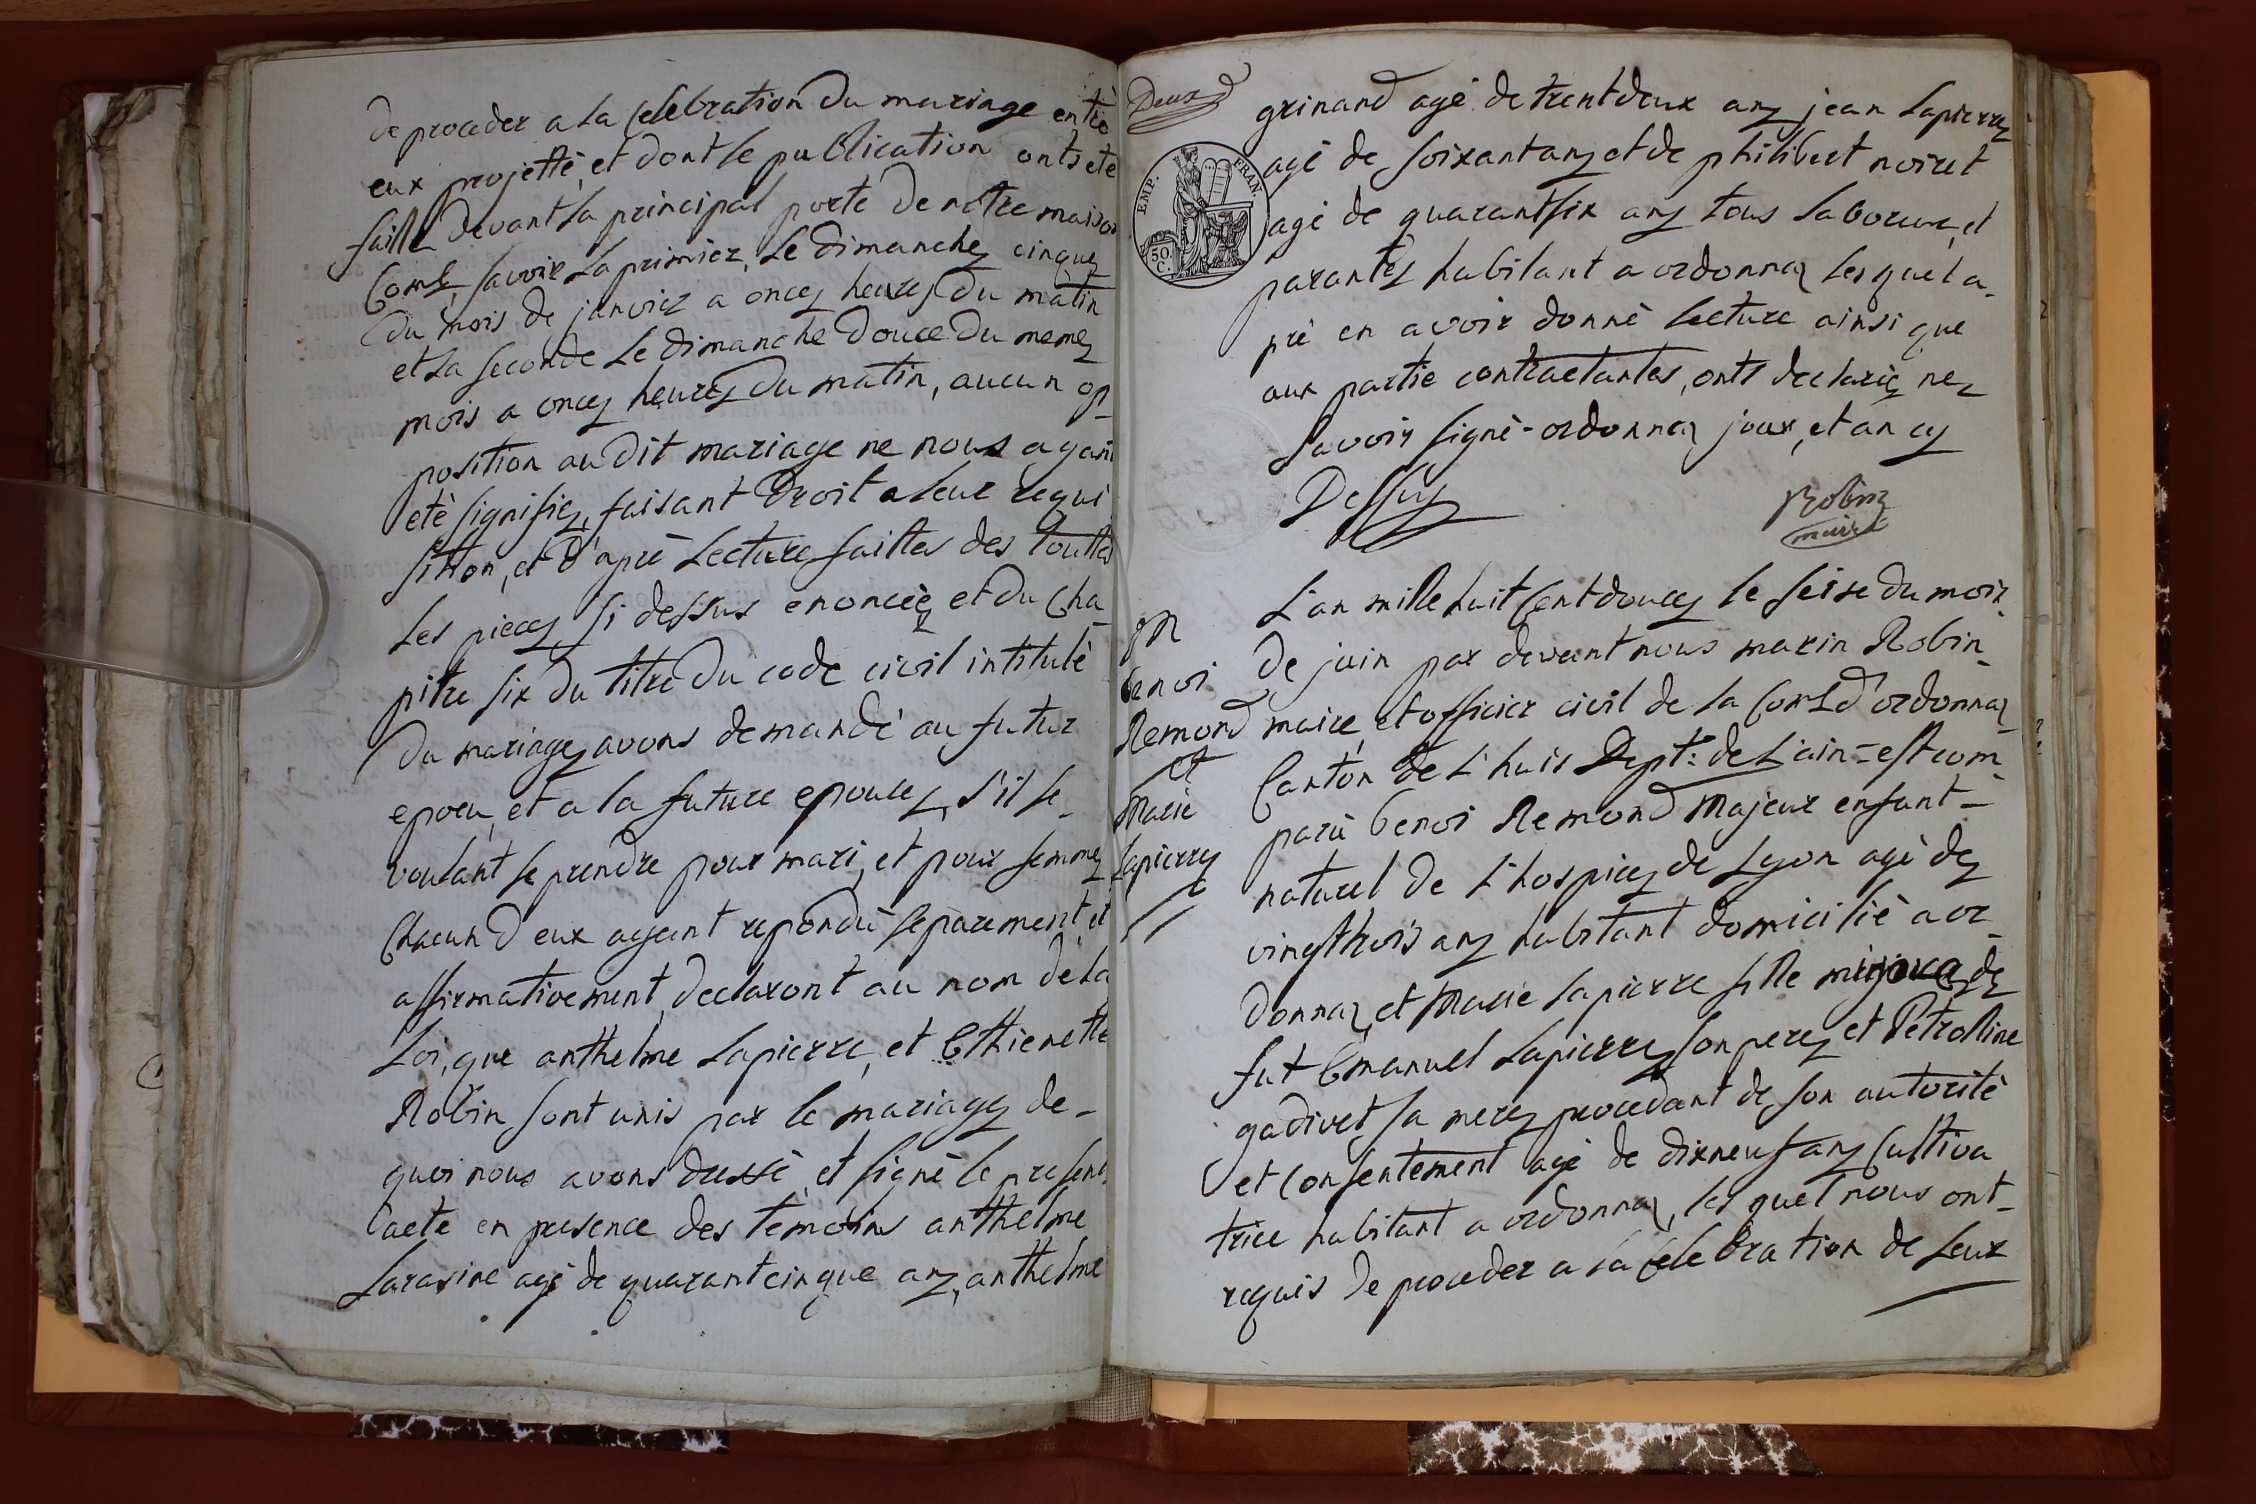 de proceder a la Celebration du mariage entrè
eux projettè, et dont le publication onts ete
faitte devant la principal porte de notre maison
Come, savoir la primiez, le dimanche cinque
du mois de janviez a once heures du matin
et la seconde le dimanche douce du meme
mois a once heures du matin, aucun op-
position au dit mariage ne nous ayant
etè signifiez, faisant droit a leur requi
sition, et d'aprè lecture faittes des toutte
les pieces si dessus enonceè et du Cha-
pitre six du titre du code civil intitulè
du mariage avons demandè au futur
epoeu, et a la future epouce, s'il se-
voulant se prendre pour mari, et pour femme
Chacun d eux ayant repondu sèparement et
affirmativement, declaront au nom de la
Loi, que anthelme Lapierre, et Ethienette
Robin sont unis par le mariage de-
quoi nous avons dressè et signè le present
acte en presence des temoins anthelme
Larasine agè de quarantcinque ans, anthelme
Deux
EMP. FRAN.
50 C.
grinand agè de trentdeux ans jean Lapierre
agè de soixantans et de philibert noiret
agè de quarantsix ans tous laboreur, et
parants habitant a ordonnaz lesquel a-
prè en avoir donnè lecture ainsi que
aux partie contractantes, onts declarèe ne
Savoir signè - ordonnaz jour, et an cy
Dessus
Robin
maire
L'an mille huit Cent douce le seise du moix
de juin par devant nous marin Robin-
maire, et officier civil de la Come d'ordonnaz
Canton de L'huis Dept: de L'ain = est com-
parû benoi Remond Majeur enfant-
naturel de L'hospice de Lyon agè de
vingthrois ans habitant domiciliè a or-
donnaz, et Marie Lapierre fille minora de
fut Emanuel Lapierre son pere et Petroline
gadivet sa mere procedant de son autoritè
et Consentement agè de dixneuf ans Cultiva
trice habitant a ordonnaz, les quel nous ont-
requis de proceder a la Celebration de leur
M
benoi
Remond
et
Marie
Lapierre